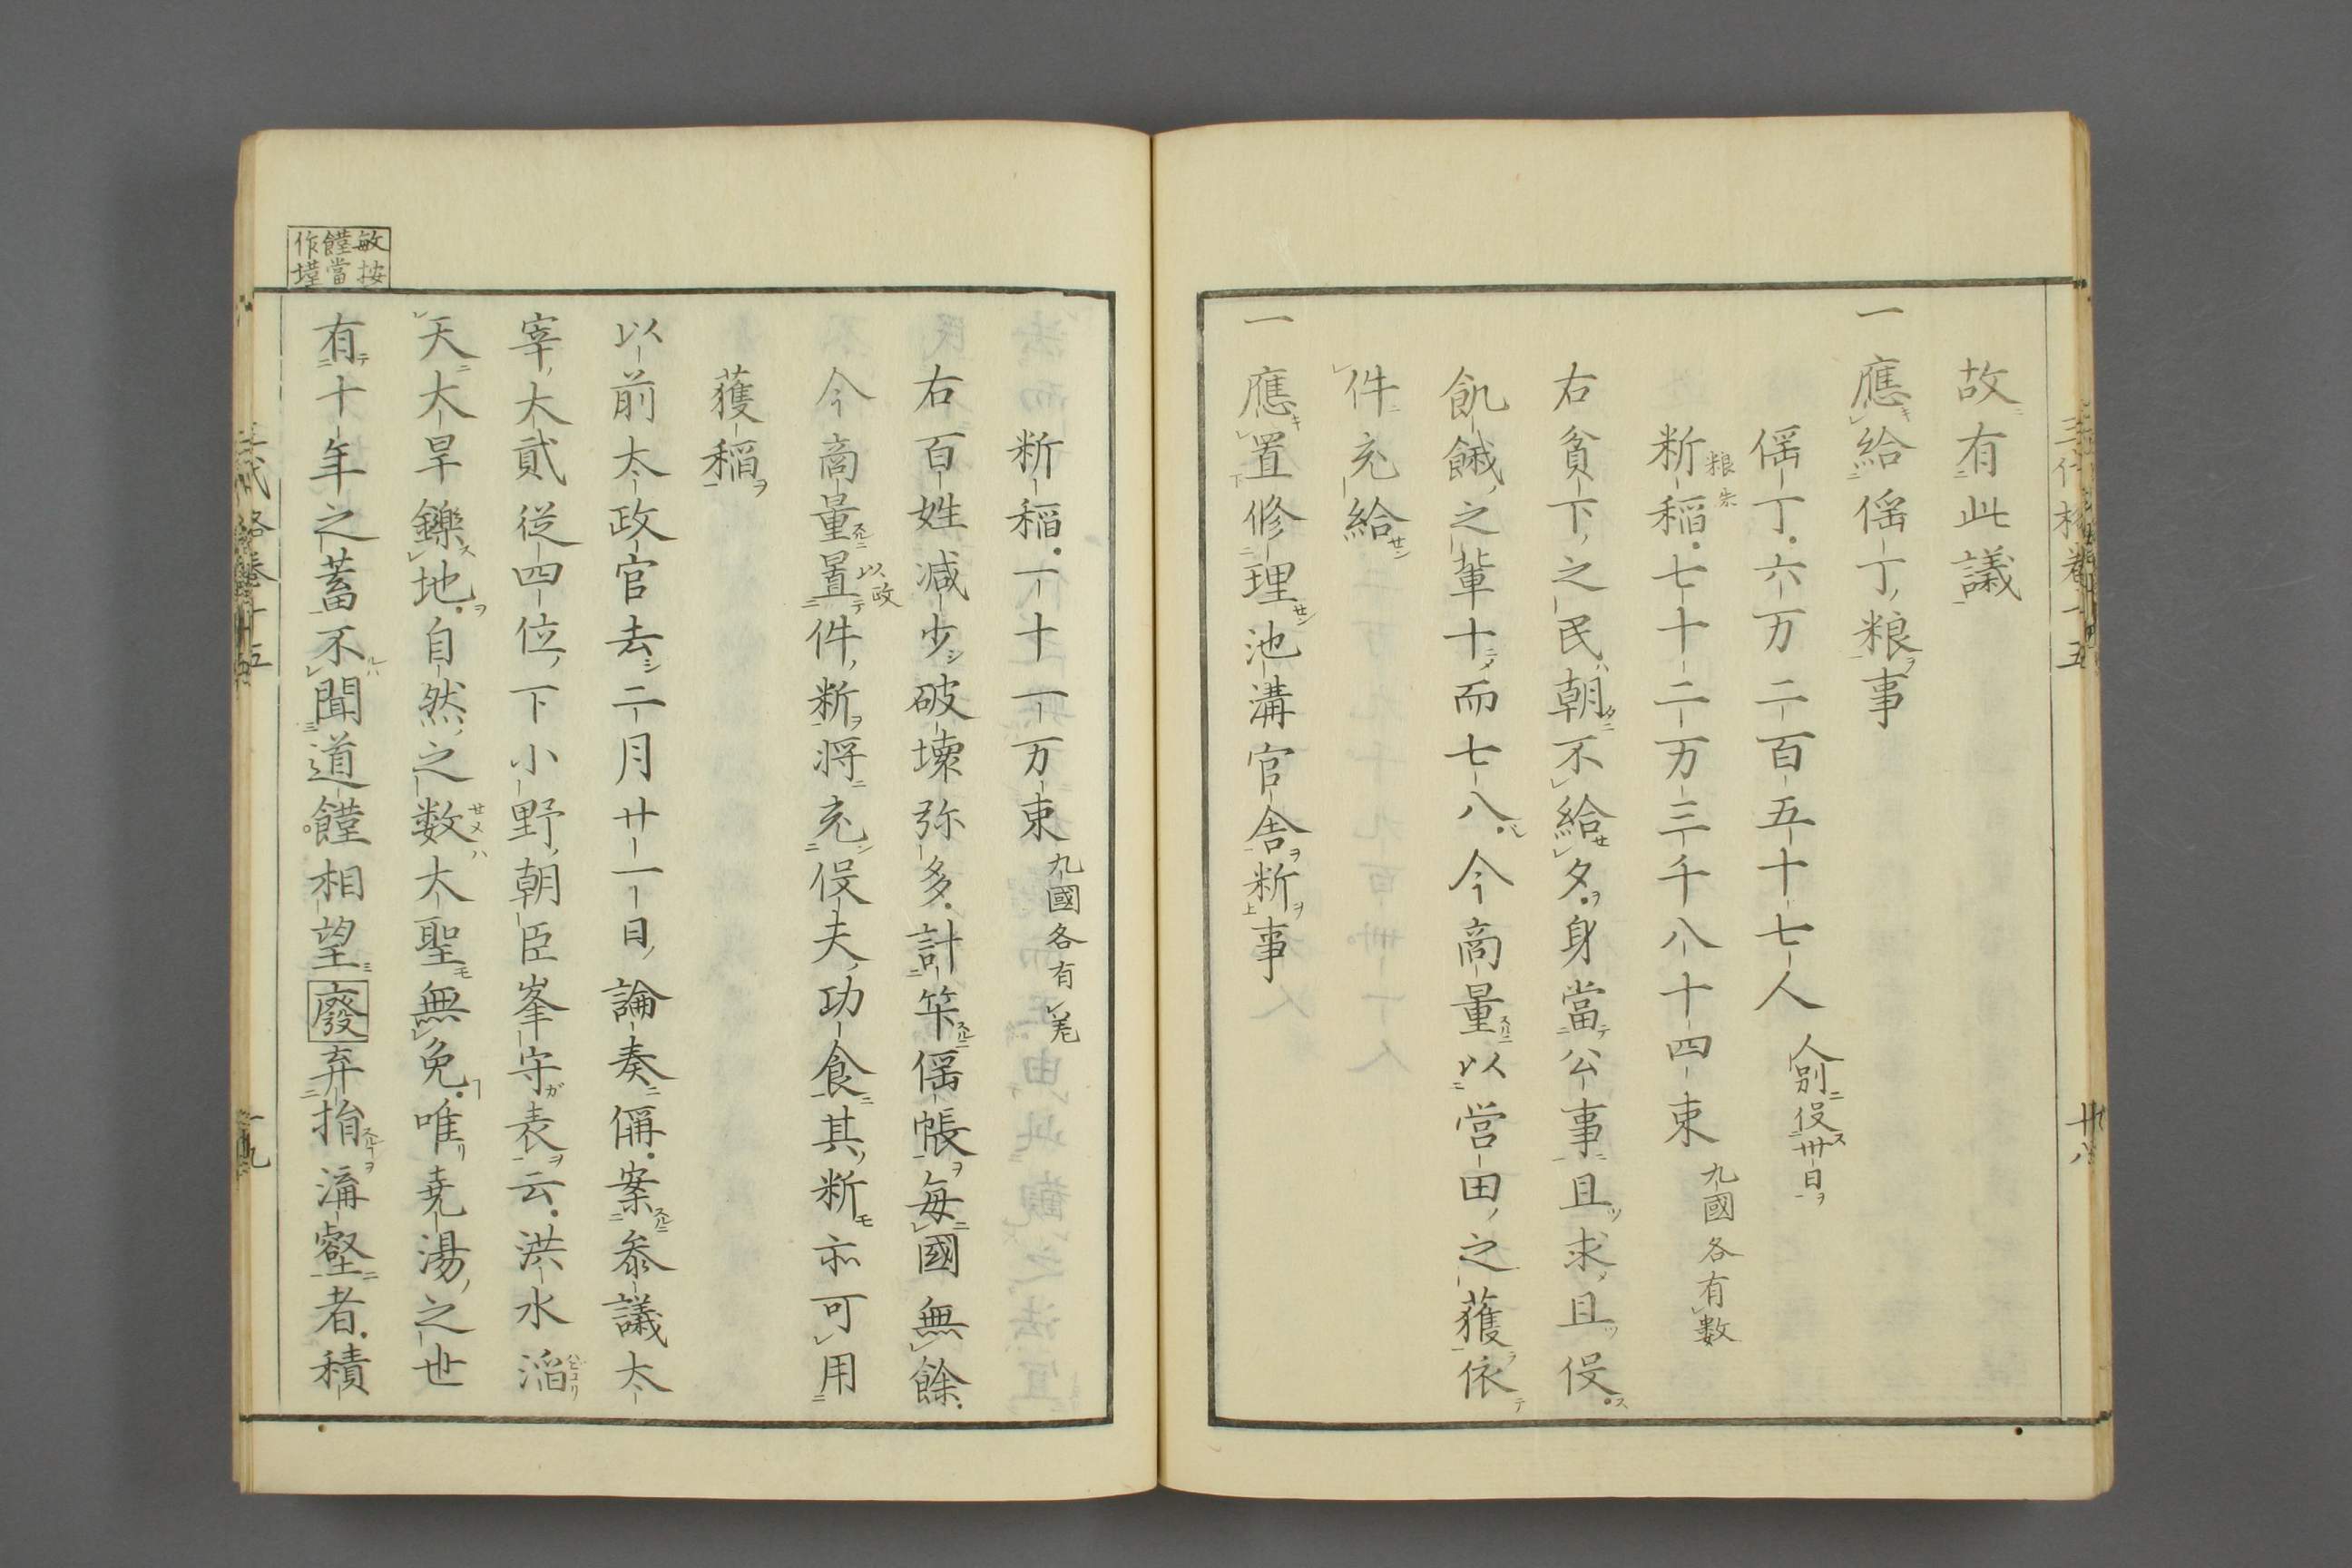 故有此議
一應給傜丁粮事
傜丁六万二百五十七人 人別役卌日
䉼稲七十二万三千八十四束 九國各有數
右貧下之民朝不給夕身當公事且求且役
飢餓之輩十而七八今商量以営田之獲依
件充給
一應置修理池溝官舎䉼事
䉼稲一十一万束 九國各有差
右百姓减少破壊弥多計筭傜帳毎國無餘
今商量置件䉼将充役夫功食其䉼亦可用
獲稲
以前太政官去二月廿一日論奏偁案叅議太
宰大貳従四位下小野朝臣峯守表云洪水滔
天大旱鑠地自然之数大聖無免唯堯湯之世
有十年之蓄不聞道饉相望廢弃捐溝壑者積
敏按
饉當
作墐
粮朱
以政
廿八